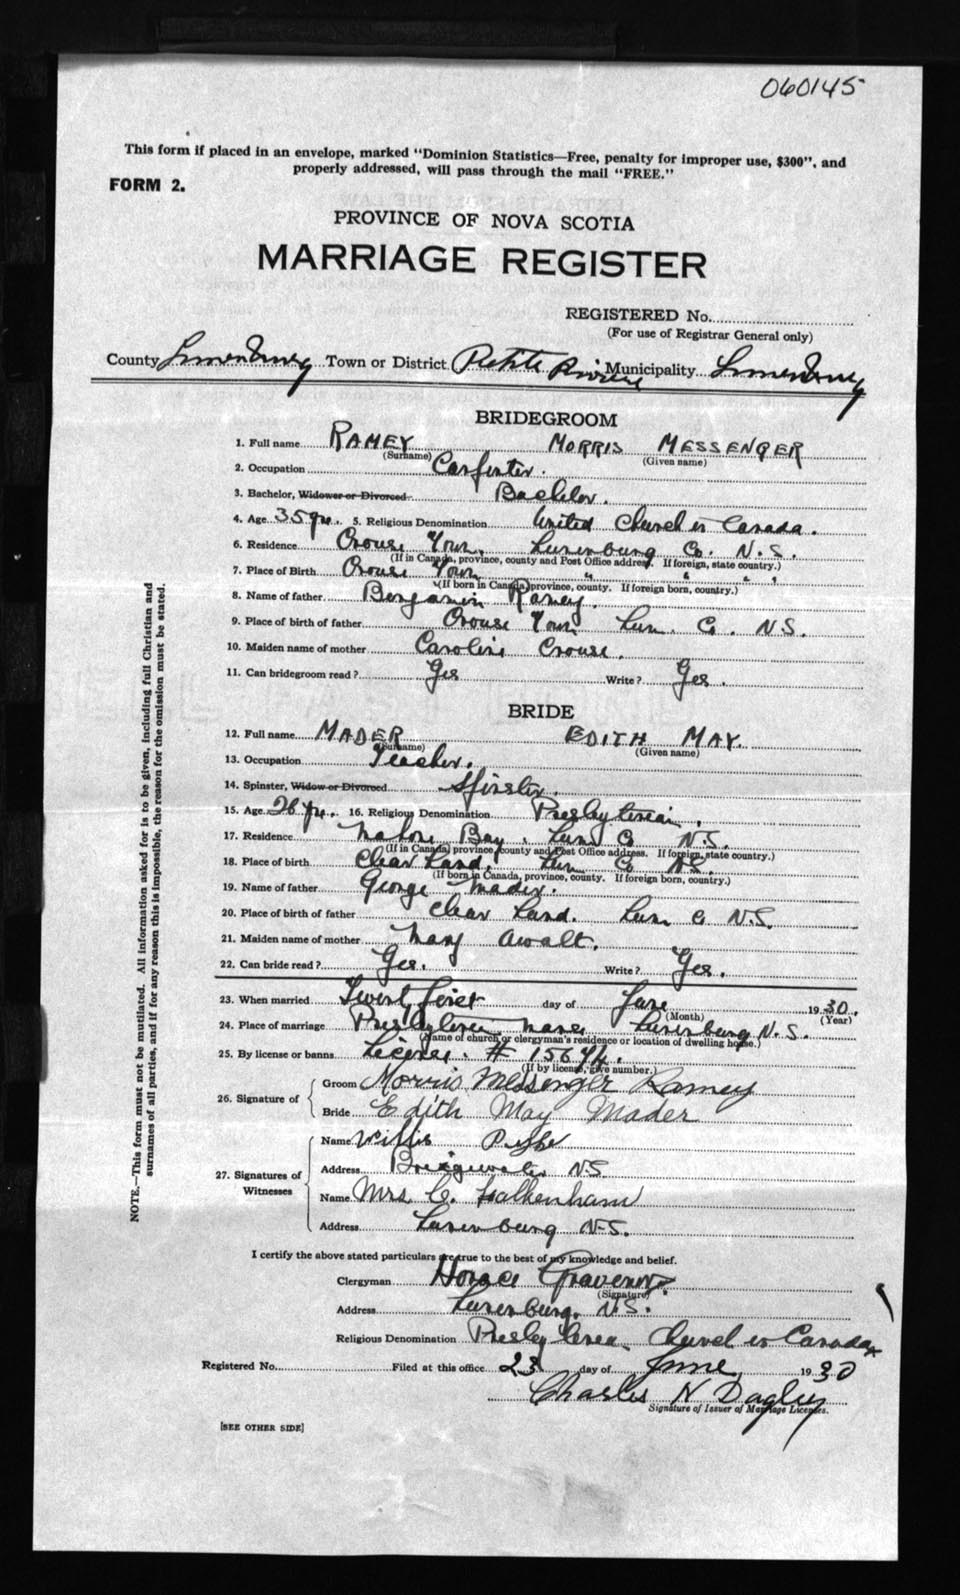 060145
This form if placed in an envelope, marked "Dominion Statistics—Free, penalty for improper use, $300", and
properly addressed, will pass through the mail "FREE."
FORM 2.
PROVINCE OF NOVA SCOTIA
MARRIAGE REGISTER
REGISTERED No.
(For use of Registrar General only)
County Lunenburg Town or District Petite Riviere Municipality Lunenburg
BRIDEGROOM
1. Full name RAMEY MORRIS MESSENGER
(Surname) (Given name)
2. Occupation Carpenter.
3. Bachelor, Widower or Divorced Bachelor.
4. Age 35 yrs. 5. Religious Denomination United Church in Canada.
6. Residence Crouse Town, Lunenburg Co. N.S.
(If in Canada, province, county and Post Office address. If foreign, state country.)
7. Place of Birth Crouse Town " " " "
(If born in Canada, province, county. If foreign born, country.)
8. Name of father Benjamin Ramey.
9. Place of birth of father Crouse Town Lun. Co. N.S.
10. Maiden name of mother Caroline Crouse.
11. Can bridegroom read? Yes Write? Yes.
BRIDE
12. Full name MADER EDITH MAY.
(Surname) (Given name)
13. Occupation Teacher.
14. Spinster, Widow or Divorced Spinster.
15. Age 26 yrs. 16. Religious Denomination Presbyterian.
17. Residence Mahone Bay, Lun Co N.S.
(If in Canada, province, county and Post Office address. If foreign, state country.)
18. Place of birth Clear Land. Lun Co N.S.
(If born in Canada, province, county. If foreign born, country.)
19. Name of father George Mader.
20. Place of birth of father Clear Land. Lun Co N.S.
21. Maiden name of mother Mary Awalt.
22. Can bride read? Yes. Write? Yes.
23. When married Twenty first day of June 1930.
(Month) (Year)
24. Place of marriage Presbyterian Manse Lunenburg N.S.
(Name of church or clergyman's residence or location of dwelling house.)
25. By license or banns License. # 15644.
(If by license, give number.)
26. Signature of
Groom Morris Messenger Ramey
Bride Edith May Mader
27. Signatures of Witnesses
Name Willis
Address Bridgewater N.S.
Name Mrs. C. Falkenham
Address Lunenburg N.S.
I certify the above stated particulars are true to the best of my knowledge and belief.
Clergyman Horace
(Signature)
Address Lunenburg, N.S.
Religious Denomination Presbyterian Church in Canada
Registered No. Filed at this office 23 day of June 1930
Charles N Dagley
Signature of Issuer of Marriage Licenses.
[SEE OTHER SIDE]
NOTE.—This form must not be mutilated. All information asked for is to be given, including full Christian and
surnames of all parties, and if for any reason this is impossible, the reason for the omission must be stated.